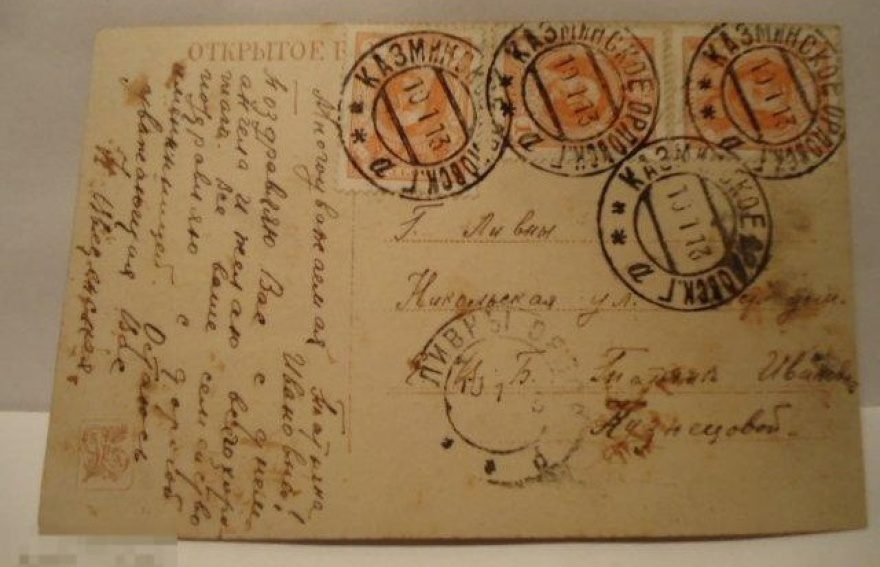 ОТКРЫТОЕ
КАЗМИНСКОЕ ОРЛОВСК.Г.
10 1 13
КАЗМИНСКОЕ ОРЛОВСК.Г.
10 1 13
КАЗМИНСКОЕ ОРЛОВСК.Г.
10 1 13
КАЗМИНСКОЕ ОРЛОВСК.Г.
10 1 13
Многоуважаемая Татьяна
Ивановна!
Поздравляю Вас с днем
ангела и желаю всего хоро
шаго. Все ваше семейство
поздравляю с дорогой
именинницей. Остаюсь
уважающая Вас
Г. Ливны
Никольская ул. дом.
Е. В. Б. Татьяне Ивановне
Кузнецовой.
ЛИВНЫ